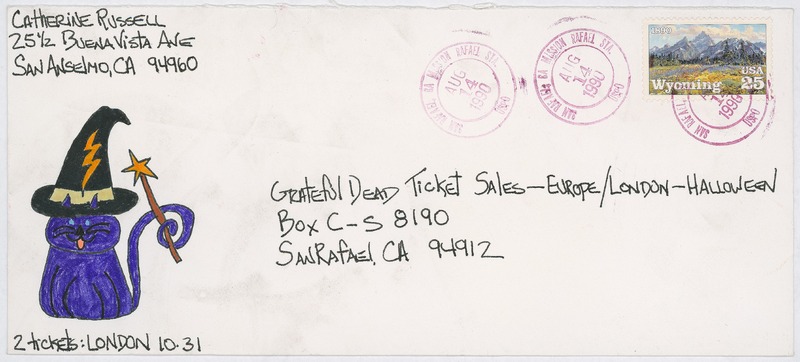 Catherine Russell
25 1/2 Buena Vista Ave
San Anselmo, CA 94960
SAN RAFAEL CA MISSION RAFAEL STA.
AUG
14
1990
SAN RAFAEL CA MISSION RAFAEL STA.
AUG
14
1990
1890
USA
Wyoming 25
SAN RAFAEL
1990
Grateful Dead Ticket Sales—Europe/London—Halloween
Box C-S 8190
San Rafael, CA 94912
2 tickets: LONDON 10.31